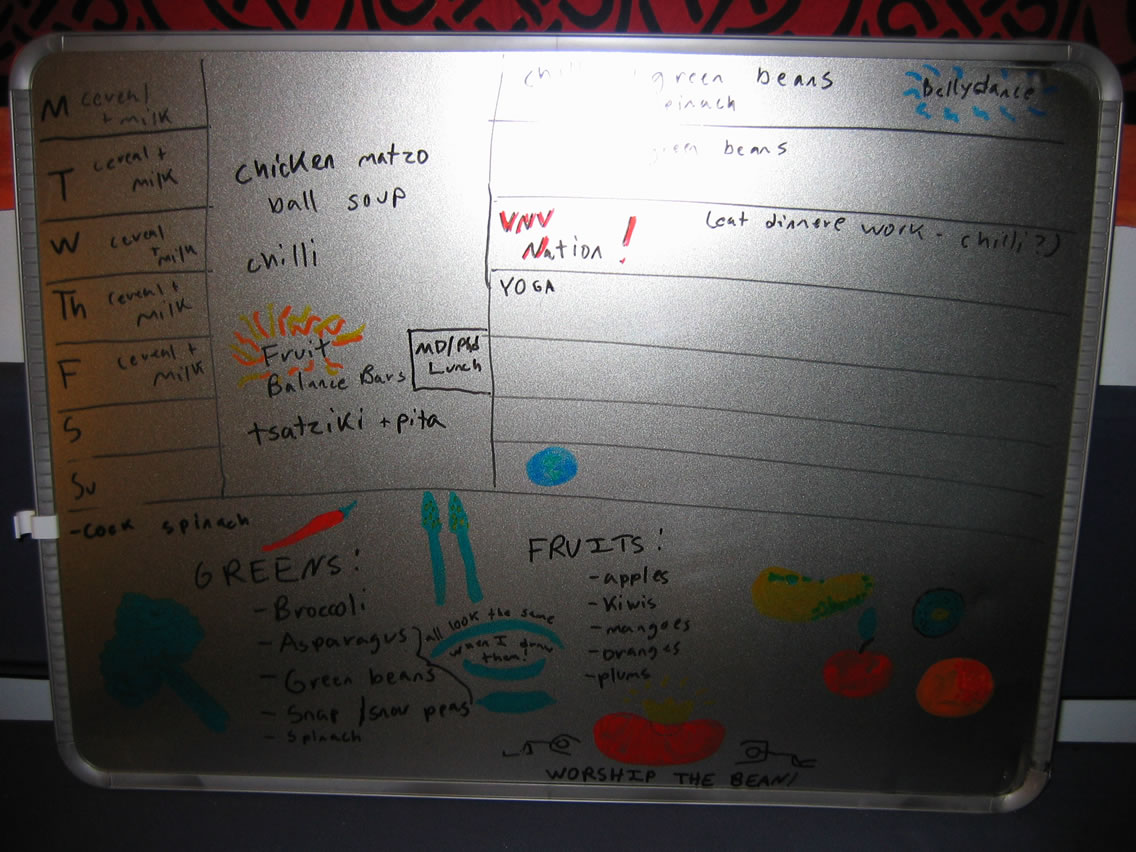 M cereal + milk
T cereal + milk
W cereal + milk
Th cereal + milk
F cereal + milk
S
Su
chicken matzo
ball soup
chilli
Fruit
Balance Bars
MD/PhD
Lunch
tsatziki + pita
green beans
spinach
Bellydance
green beans
VNV
Nation!
(eat dinnere work - chilli?)
YOGA
- cook spinach
GREENS:
- Broccoli
- Asparagus
- Green beans
- Snap / snow peas
- spinach
all look the same
when I draw
them!
FRUITS:
- apples
- kiwis
- mangoes
- oranges
- plums
WORSHIP THE BEAN!